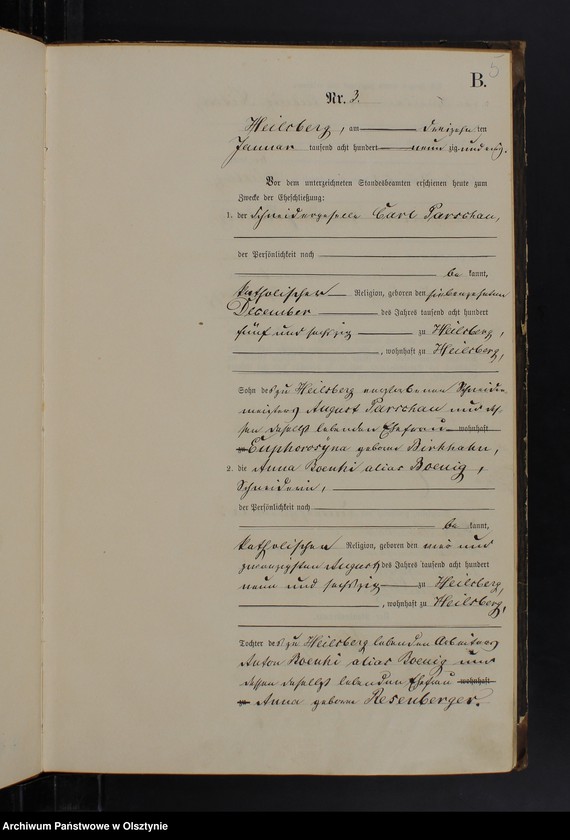 5
B.
Nr. 3.
Heilsberg, am dreizehn ten
Januar tausend acht hundert neun zig und
Vor dem unterzeichneten Standesbeamten erschienen heute zum
Zwecke der Eheschließung:
1. der Schneidergeselle Carl Parschau,
der Persönlichkeit nach
be kannt,
katholischer Religion, geboren den siebenzehnten
December des Jahres tausend acht hundert
fünf und sechszig zu Heilsberg,
, wohnhaft zu Heilsberg,
Sohn des zu Heilsberg verstorbenen Schneider
meisters August Parschau und des
sen daselbst lebenden Ehefrau wohnhaft
zu Euphorosyna geborne Birkhahn,
2. die Anna Boenki alias Boenig,
Schneiderin,
der Persönlichkeit nach
be kannt,
katholischer Religion, geboren den vier und
zwanzigsten August des Jahres tausend acht hundert
neun und sechszig zu Heilsberg,
, wohnhaft zu Heilsberg,
Tochter des zu Heilsberg lebenden Arbeiters
Anton Boenki alias Boenig und
dessen daselbst lebenden Ehefrau wohnhaft
zu Anna geborne Resenberger.
Archiwum Państwowe w Olsztynie